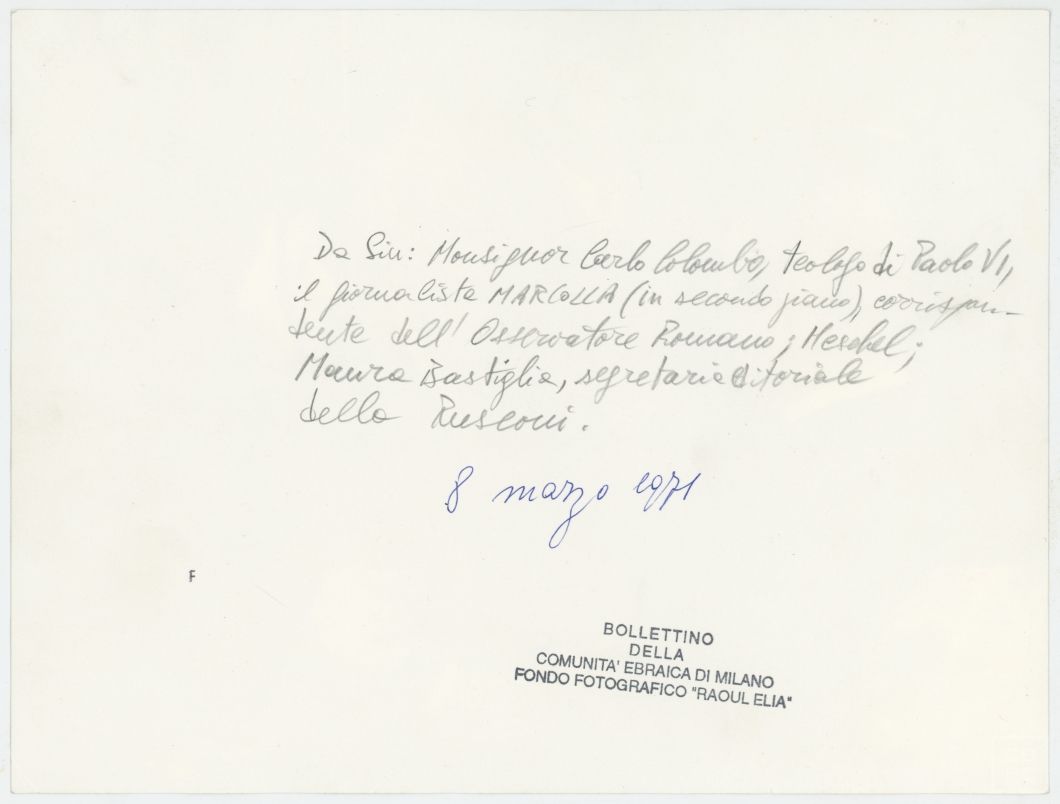 Da Sin: Monsignor Carlo Colombo, teologo di Paolo VI,
il giornalista MARCOLLA (in secondo piano), corrispon-
dente dell' Osservatore Romano; Heschel;
Maura Bastiglia, segretaria editoriale
della Rusconi.
8 marzo 1971
F
BOLLETTINO
DELLA
COMUNITA' EBRAICA DI MILANO
FONDO FOTOGRAFICO "RAOUL ELIA"